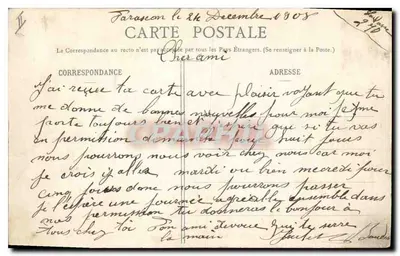 Tarascon le 24 Decembre 1908
CARTE POSTALE
La Correspondance au recto n'est pas acceptée par tous les Pays Étrangers. (Se renseigner à la Poste.)
Cher ami
CORRESPONDANCE ADRESSE
J'ai reçue ta carte avec plaisir voyant que tu
me donne de bonnes nouvelles pour moi je me
porte toujours bien et j'espere que si tu vas
en permission dimanche pour huit jours
nous pourrons nous voir chez nous car moi
je crois y aller mardi ou bien mecredi pour
cinq jours donc nous pourrons passer
je l'espère une journée agréable ensemble dans
nos permission tu donneras le bonjour à
tous chez toi Ton ami devoué qui te serre
la main